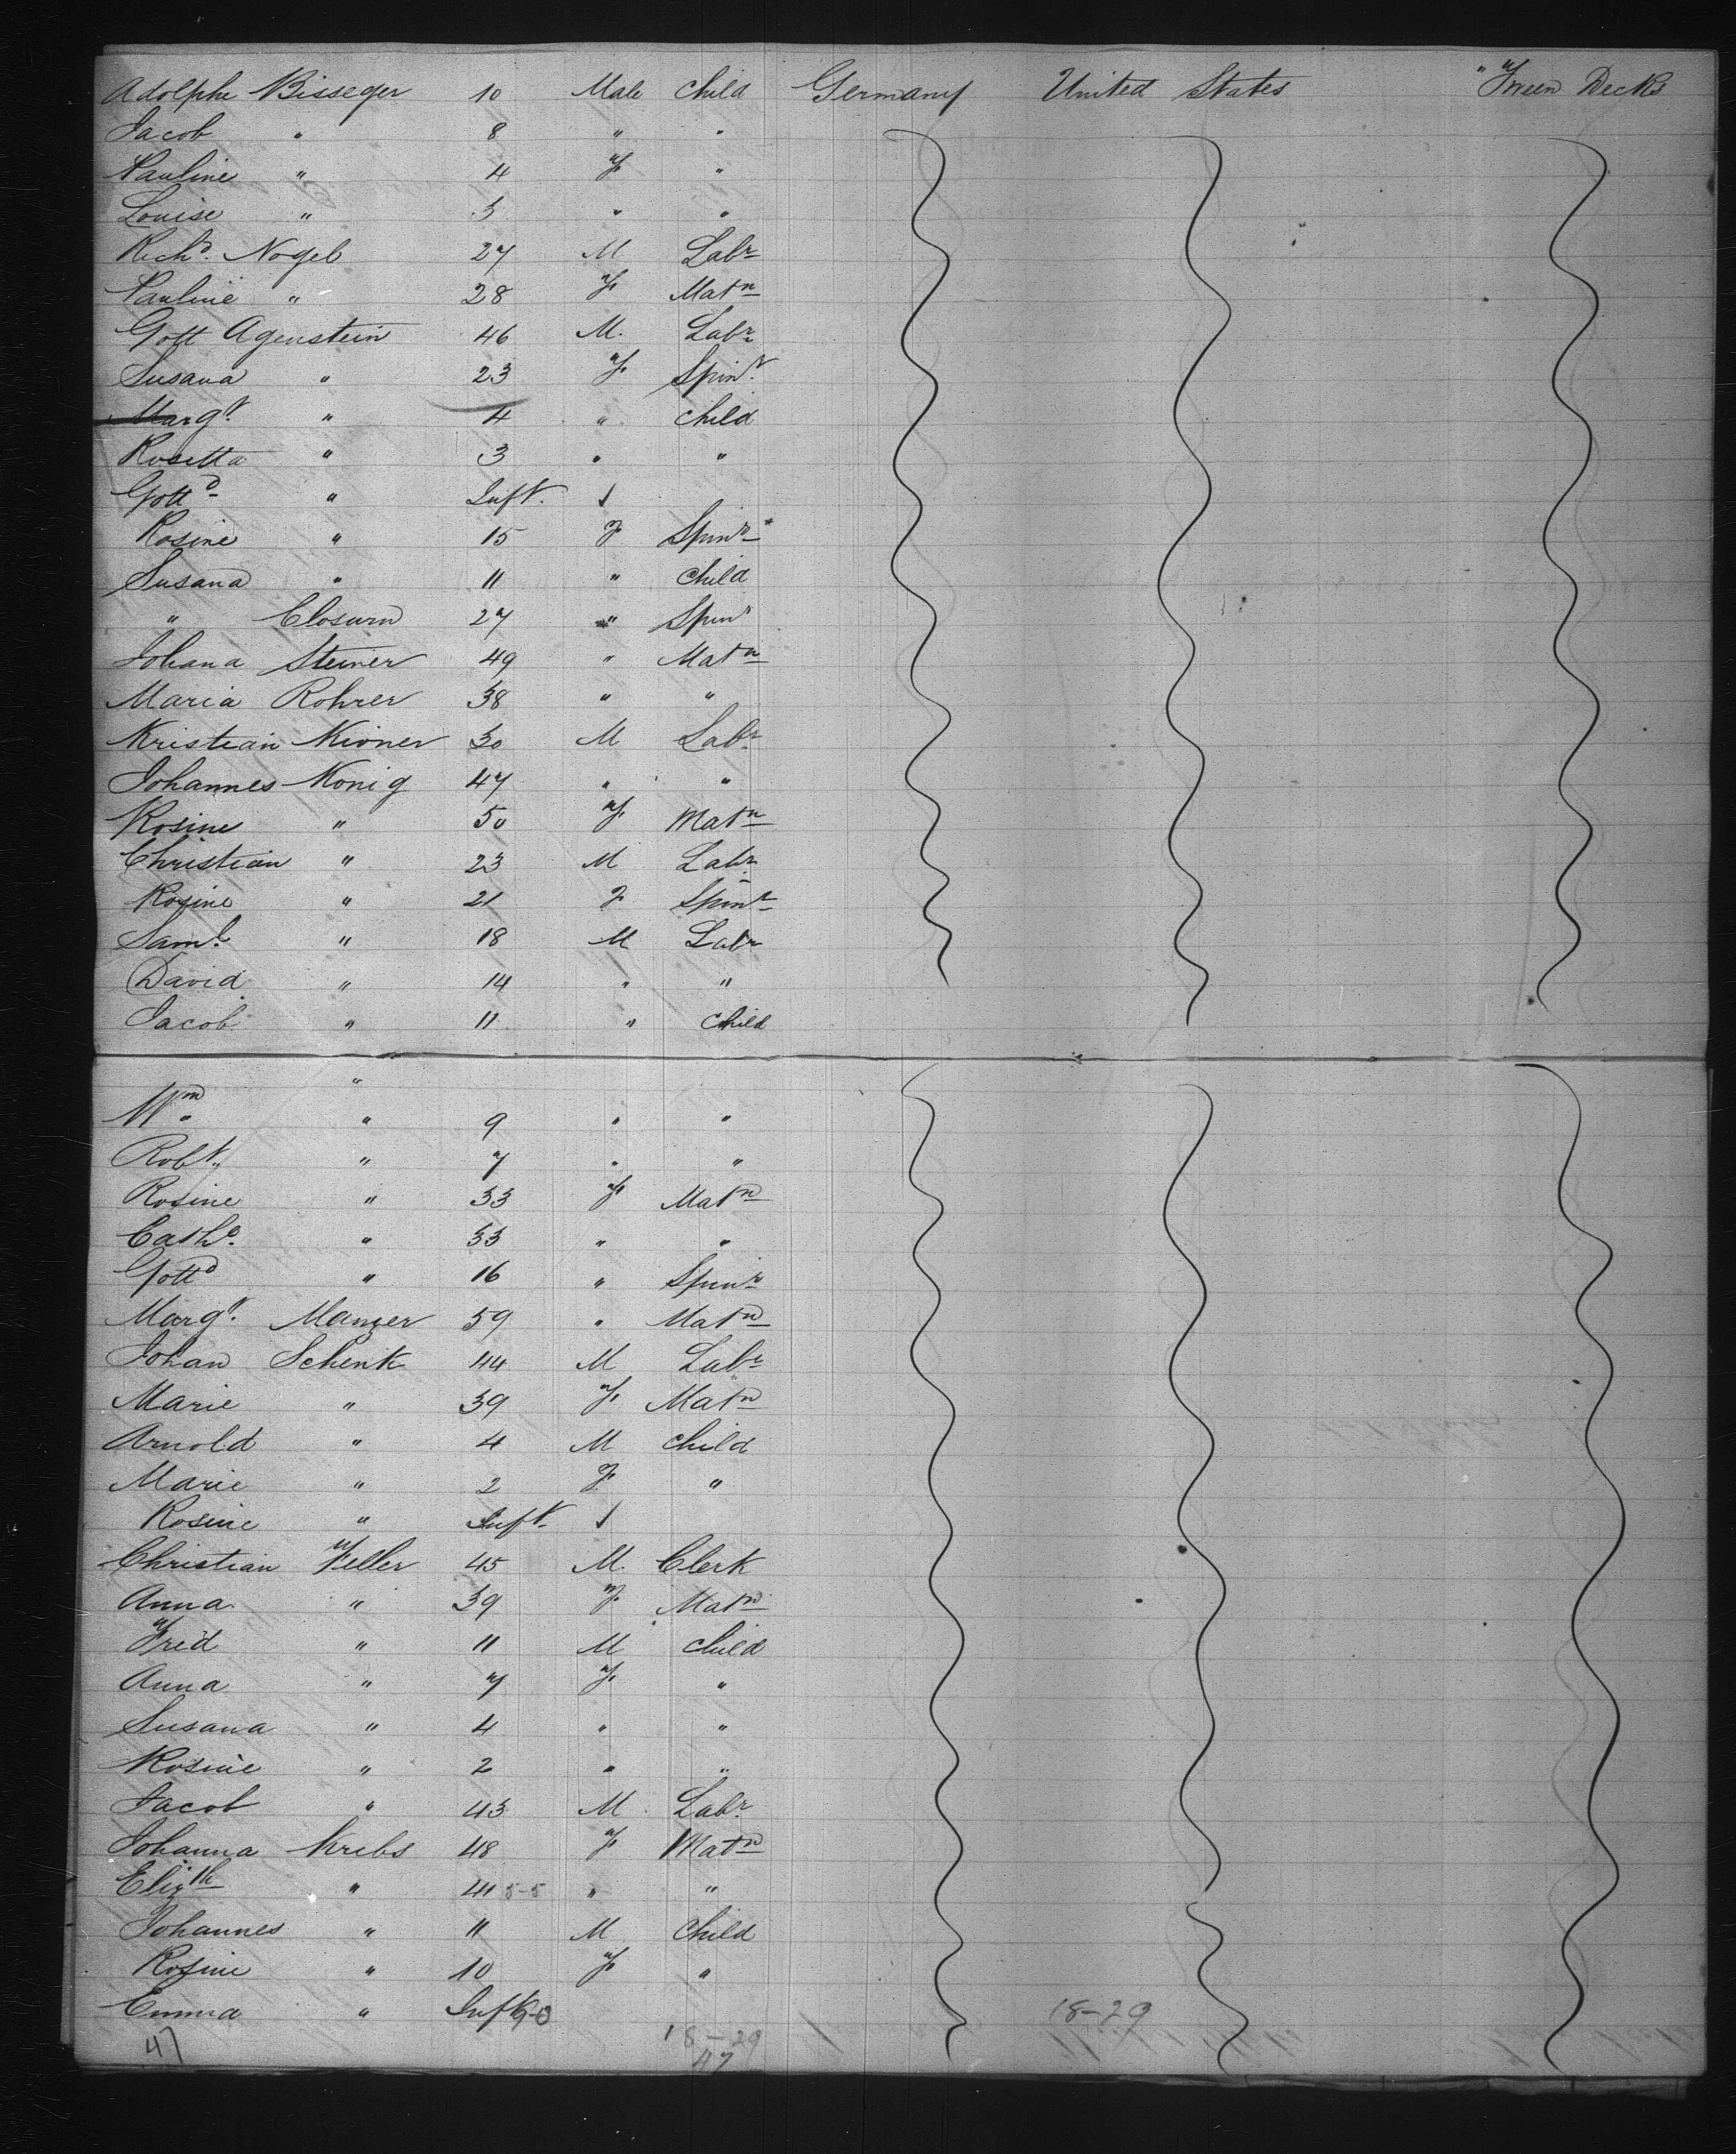 Adolphe Bisseger 10 Male Child Germany United States 'Tween Decks
Jacob " 8 " "
Pauline " 4 F. "
Louise " 3 " "
Richd. Nogel 27 M Labr
Pauline " 28 F. Matn
Gott Agenstein 46 M. Labr
Susana " 23 F. Spinr.
Margt. " 4 " Child
Rosetta " 3 " "
Gottd " Inft.
Rosine " 15 F Spinr
Susana " 11 " Child
" Closurn 27 " Spinr
Johana Steiner 49 " Matn
Maria Rohrer 38 " "
Kristian Kioner 30 M Labr
Johannes Konig 47 " "
Rosine " 50 F. Matn
Christian " 23 M Labr
Rosine " 21 F. Spinr
Saml. " 18 M Labr
David " 14 " "
Jacob " 11 " Child
"
Wm. " 9 " "
Robt. " 7 " "
Rosine " 33 F. Matn
Cathe. " 33 " "
Gottd " 16 " Spinr
Margt. Manzer 59 " Matn
Johan Schenk 44 M Labr
Marie " 39 F. Matn
Arnold " 4 M Child
Marie " 2 F. "
Rosine " Inft.
Christian Feller 45 M. Clerk
Anna " 39 F. Matn
Fred " 11 M Child
Anna " 7 F. "
Susana " 4 " "
Rosine " 2 " "
Jacob " 43 M Labr.
Johanna Krebs 48 F. Matn
Elizth " 41 5-5 " "
Johannes " 11 M Child
Rosine " 10 F. "
Emma " Inft
18-29
47 18-29
47